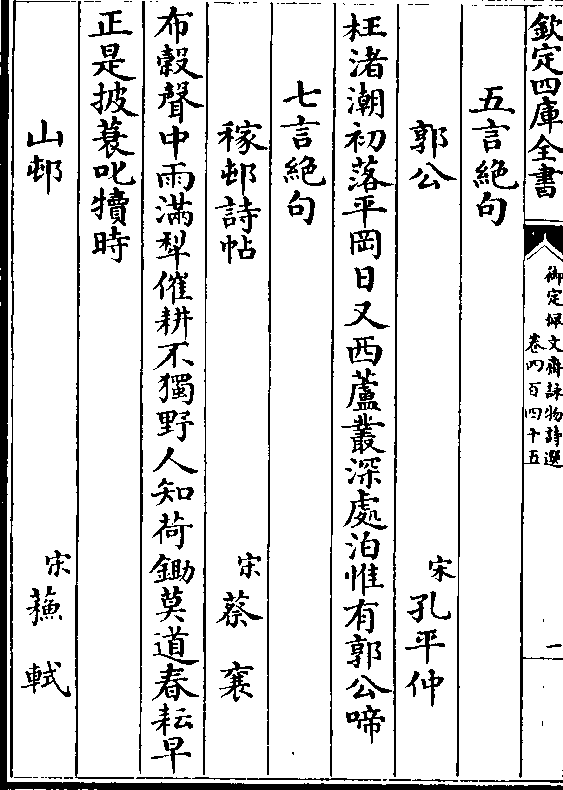 欽定四庫全書
御定佩文齋詠物詩選
卷四百四十五
一
五言絶句
郭公
宋
孔平仲
枉渚潮初落平岡日又西蘆叢深處泊惟有郭公啼
七言絶句
稼邨詩帖
宋
蔡襄
布穀聲中雨滿犂催耕不獨野人知荷鋤莫道春耘早
正是披蓑叱犢時
山邨
宋
蘇軾